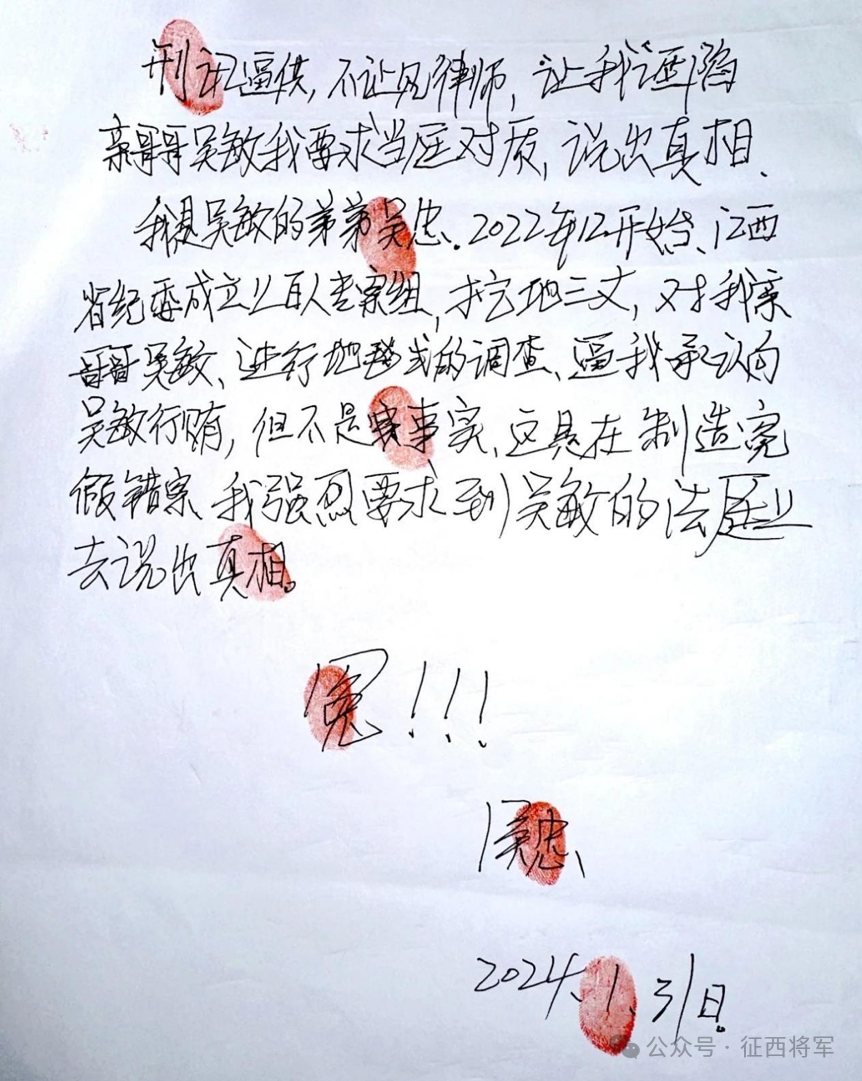 刑讯逼供，不让见律师，让我诬陷
亲哥哥吴敏我要求当庭对质、说出真相、
我是吴敏的弟弟吴忠．2022年12月开始、江西
省纪委成立上百人专案组，挖地三丈，对我亲
哥哥吴敏、进行地毯式的调查、逼我承认向
吴敏行贿，但不是事实、这是在制造冤
假错案、我强烈要求到吴敏的法庭上
去说出真相。
冤！！！
吴忠、
2024.1.31日.
公众号·征西将军